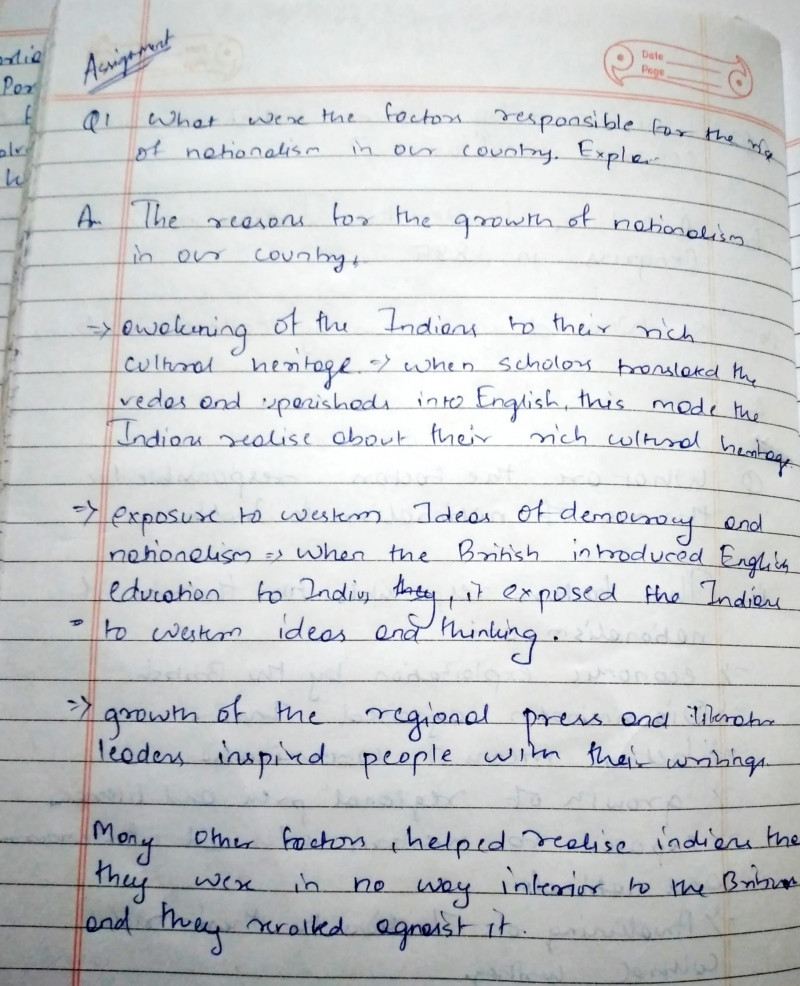 Assignment
Date
Page
Q1 What were the factors responsible for the rise
of nationalism in our country. Explain
A The reasons for the growth of nationalism
in our country.
=> awakening of the Indians to their rich
cultural heritage => when scholars translated the
vedas and upanishads into English, this made the
Indians realise about their rich cultural heritage
=> exposure to western Ideas of democracy and
nationalism => when the British introduced English
education to Indians they, it exposed the Indians
to western ideas and thinking.
=> growth of the regional press and literature
leaders inspired people with their writings.
Many other factors, helped realise indians the
they were in no way inferior to the British
and they revolted agnaist it.